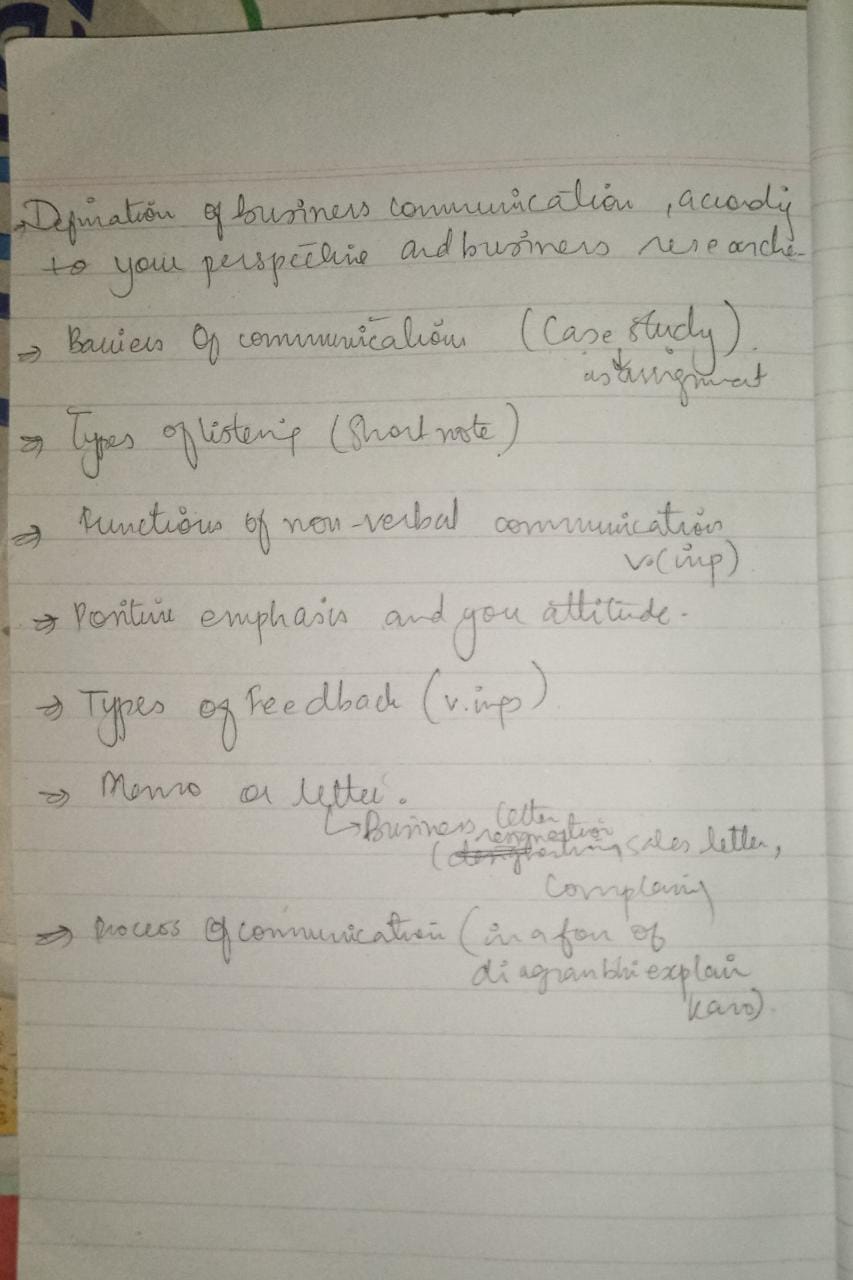 → Defination of business communication , accordig
to your perspective and business researche-
⇒ Barriers Of communication (Case study).
as assignment
⇒ Types of listenig (Short note)
⇒ Functions of non-verbal communication
v.(imp)
⇒ Positive emphasis and you attitude.
⇒ Types of Feedback (v.imp)
⇒ Memo or letter.
↳ Business letter
( resignation sales letter,
Complaing
⇒ Process Of communication (in a fom of
diagram bhi explain
karo).